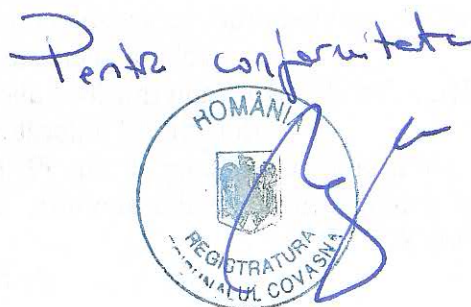 Pentru conformitate
ROMÂNIA
REGISTRATURA
TRIBUNALUL COVASNA